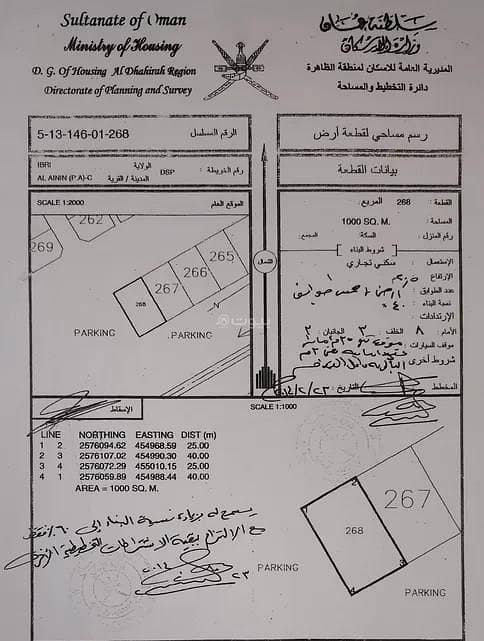 Sultanate of Oman
Ministry of Housing
D. G. Of Housing Al Dhakirah Region
Directorate of Planning and Survey
سلطنة عمان
وزارة الإسكان
المديرية العامة للاسكان لمنطقة الظاهرة
دائرة التخطيط والمساحة
5-13-146-01-268
الرقم المسلسل
رسم مساحي لقطعة أرض
IBRI
الولاية
AL AININ (P.A)-C
المدينة / القرية
DSP
رقم الخريطة :
بيانات القطعة
SCALE 1:2000
الموقع العام
القطعة : 268 المربع:
المساحة: 1000 SQ. M.
رقم المنزل : السكة: المجمع:
شروط البناء
الإستعمال : سكني تجاري
الإرتفاع
عدد الطوابق :
نسبة البناء : ٤٠
الإرتدادات :
الأمام : ٨ الخلف : ٣ الجانبان : ٢
موقف السيارات :
شروط أخرى
المخطط
التاريخ: ٢٠١٤/٢/٢٣
262
269
265
266
267
268
N
PARKING
PARKING
الشمال
الإسقاط
SCALE 1:1000
LINE NORTHING EASTING DIST (m)
1 2 2576094.62 454968.59 25.00
2 3 2576107.02 454990.30 40.00
3 4 2576072.29 455010.15 25.00
4 1 2576059.89 454988.44 40.00
AREA = 1000 SQ. M.
يسمح له بزيادة نسبة البناء إلى ٦٠٪ فقط
مع الالتزام ببقية الاشتراطات التخطيطية
267
268
PARKING
PARKING